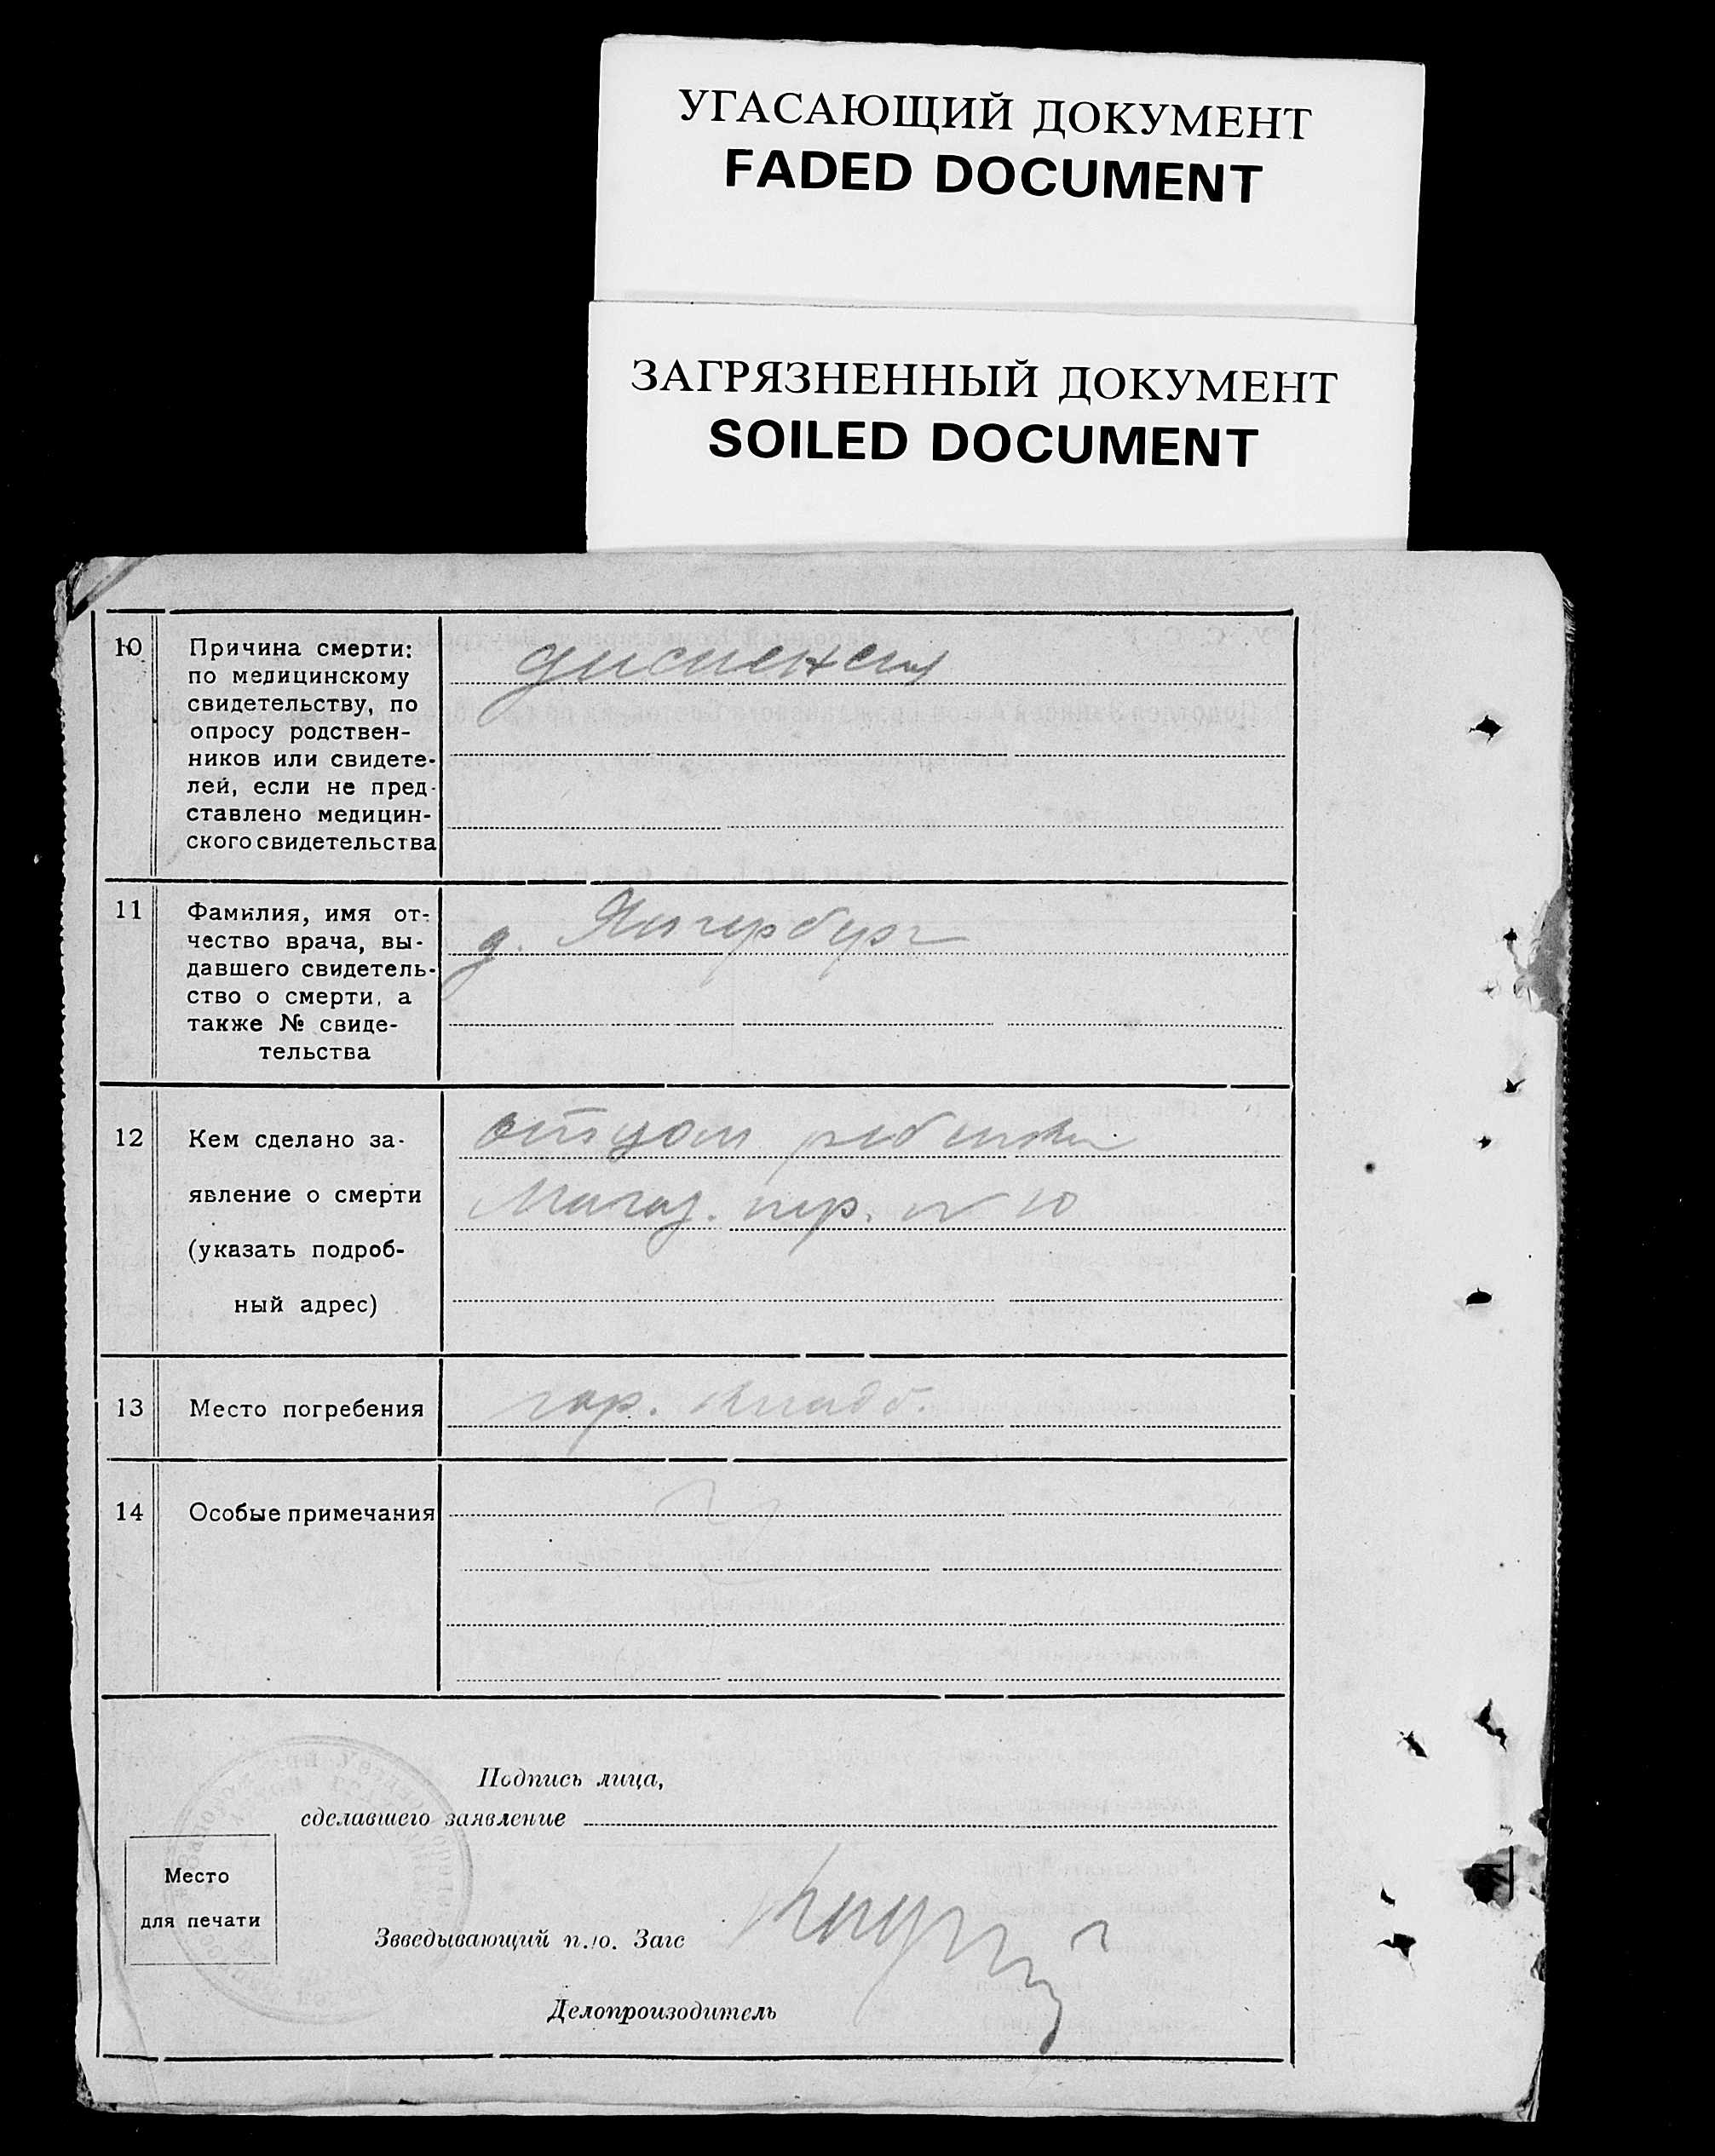 УГАСАЮЩИЙ ДОКУМЕНТ
FADED DOCUMENT
ЗАГРЯЗНЕННЫЙ ДОКУМЕНТ
SOILED DOCUMENT
10
Причина смерти:
по медицинскому
свидетельству, по
опросу родствен-
ников или свидете-
лей, если не пред-
ставлено медицин-
ского свидетельства
11
Фамилия, имя от-
чество врача, вы-
давшего свидетель-
ство о смерти, а
также № свиде-
тельства
д.
12
Кем сделано за-
явление о смерти
(указать подроб-
ный адрес)
отцом ребенка
Магаз. пер. № 10
13
Место погребения
гор. кладб.
14
Особые примечания
Подпись лица,
сделавшего заявление
Место
для печати
Звведывающий п.ю. Загс
Делопроизодитель